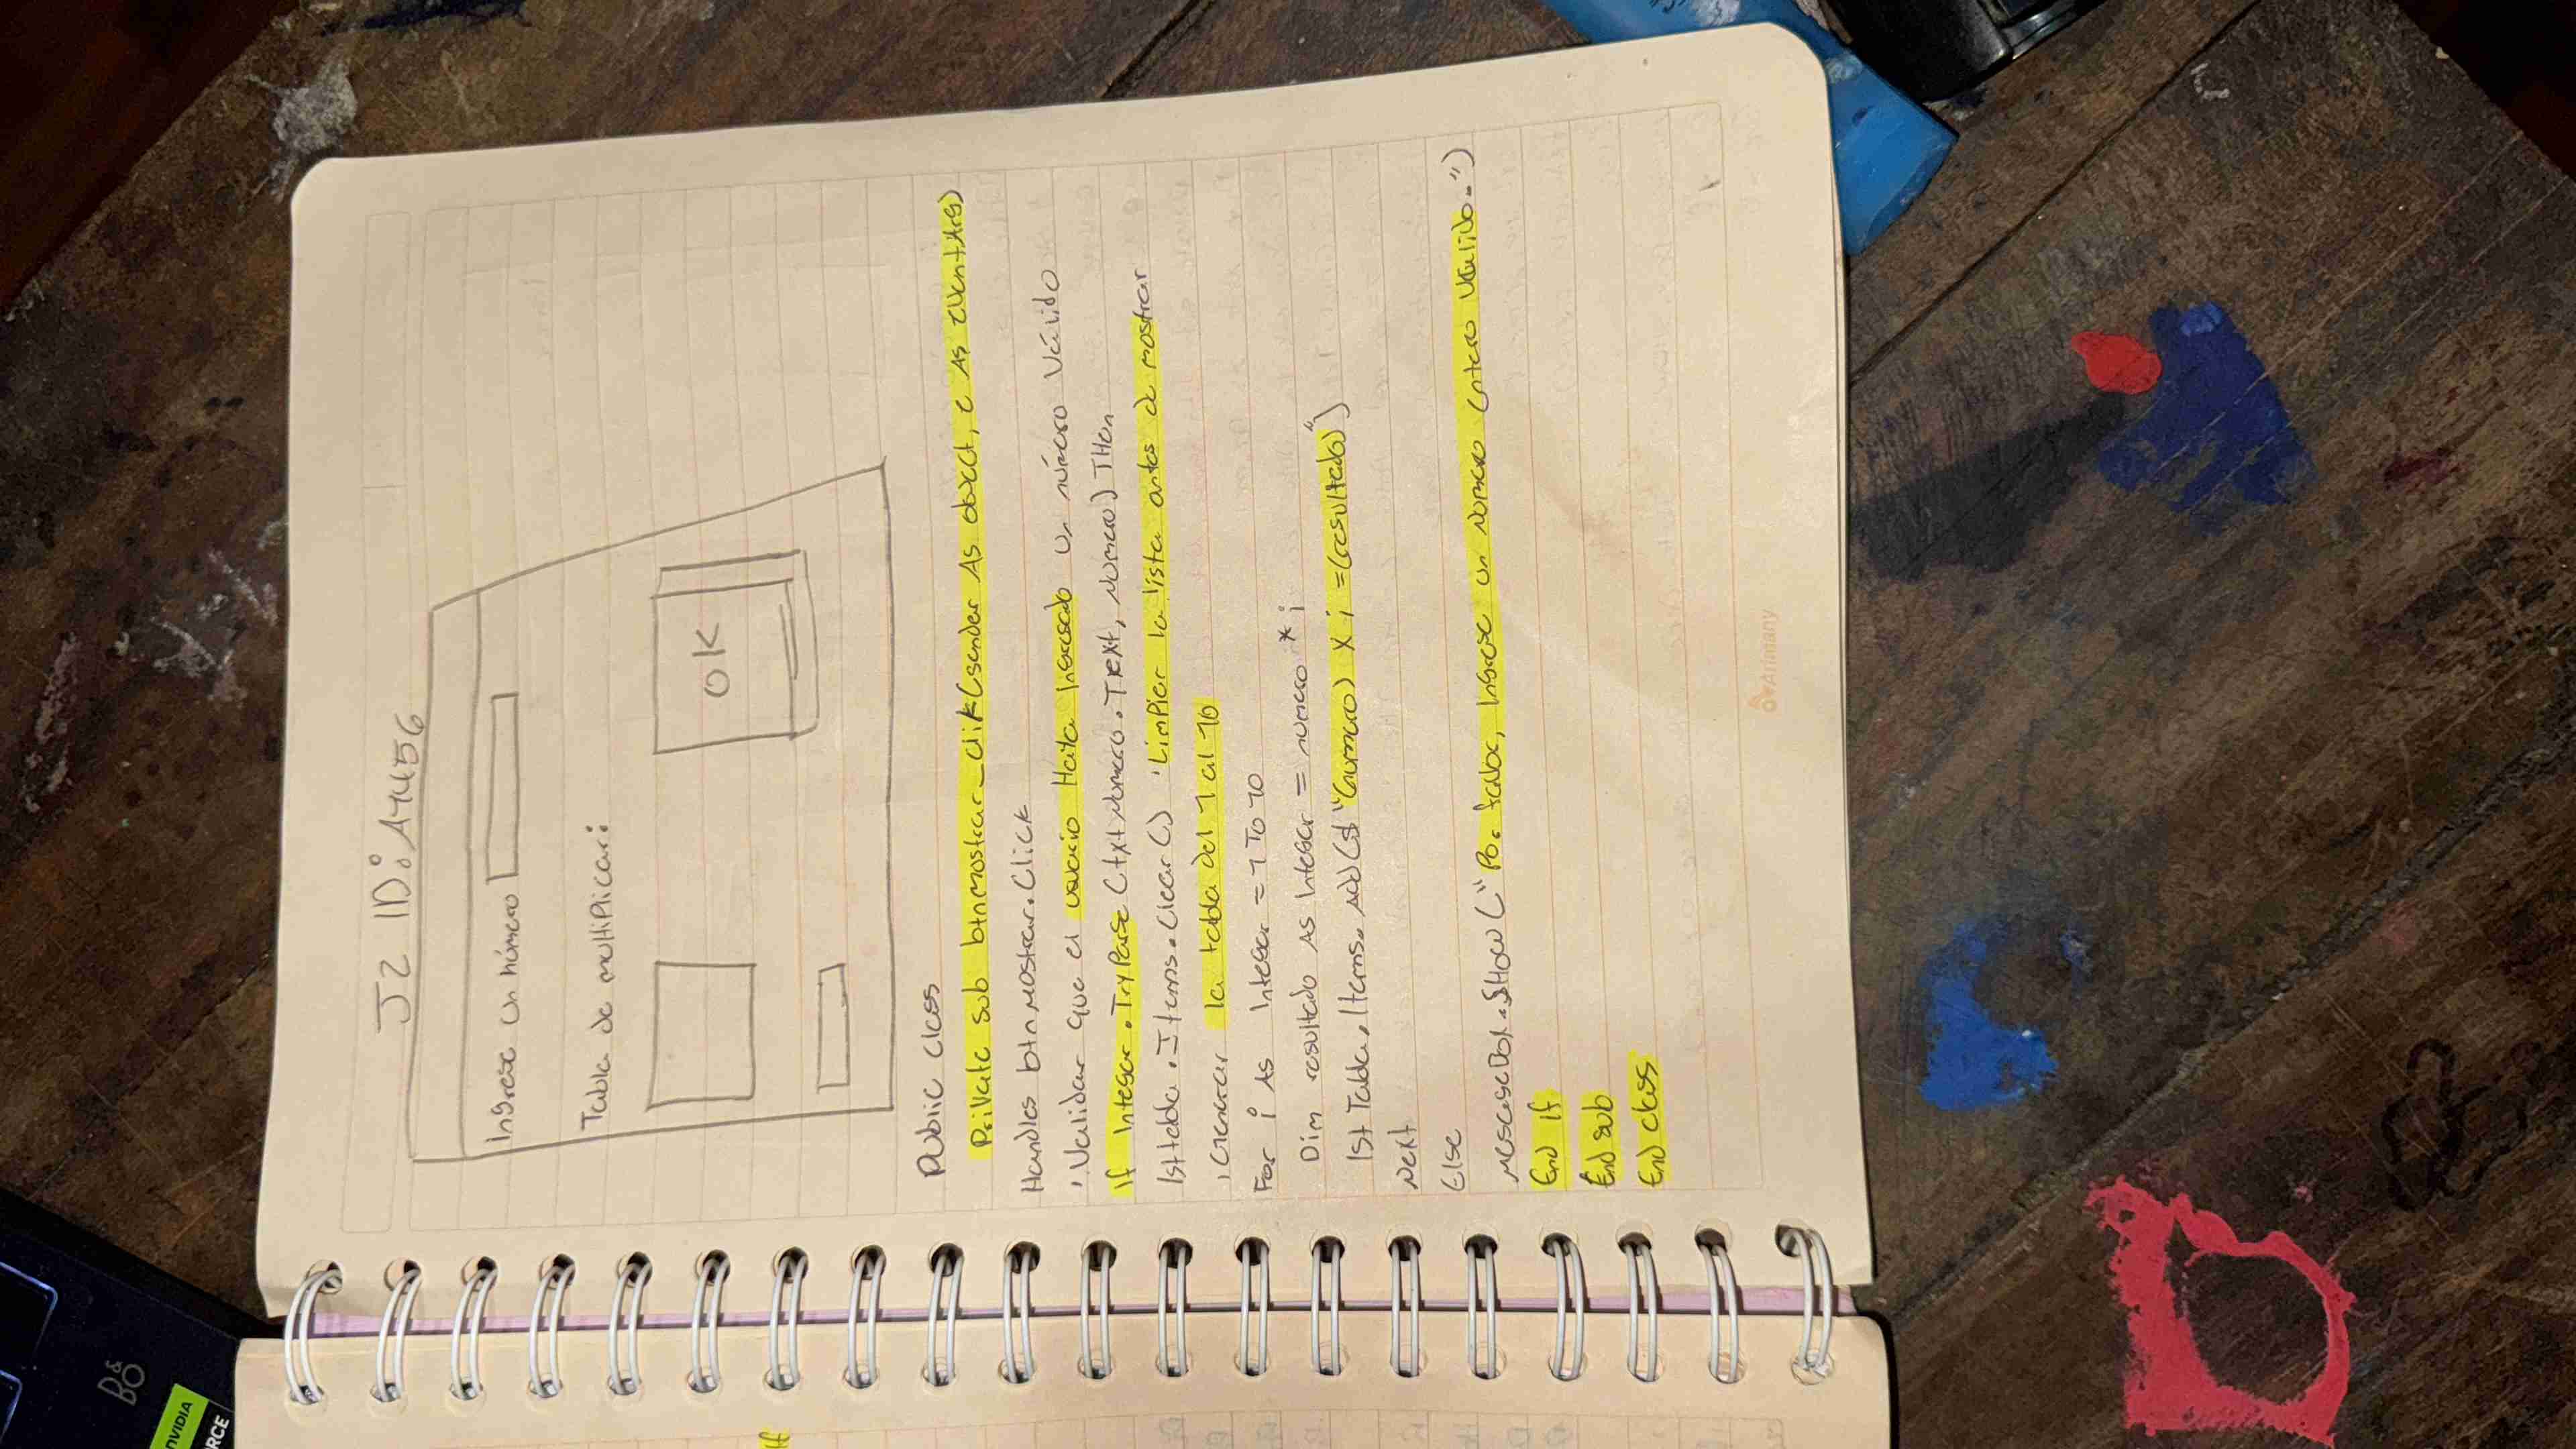 J2 ID: A4456
Ingrese un número
Tabla de multiplicar:
OK
Public Class
Private sub btnmostrar_click(sender As obect, e As eventArgs)
Handles btnmostrar.Click
'Validar que el usuario Haya Ingresado un número Válido
If Integer.TryParse(txtNumero.Text, numero) THen
lsttabla.Items.Clear() 'Limpiar la lista antes de mostrar
'Generar la tabla del 1 al 10
For i As Integer = 1 To 10
Dim resultado As Integer = numero * i
lstTabla.Items.Add($"(numero) x i = (resultado)")
Next
Else
MessageBox.SHow("Por fabor, Ingrese un numero entero Valido.")
End If
End sub
End class
Arimany
B&O
NVIDIA
RCE
If